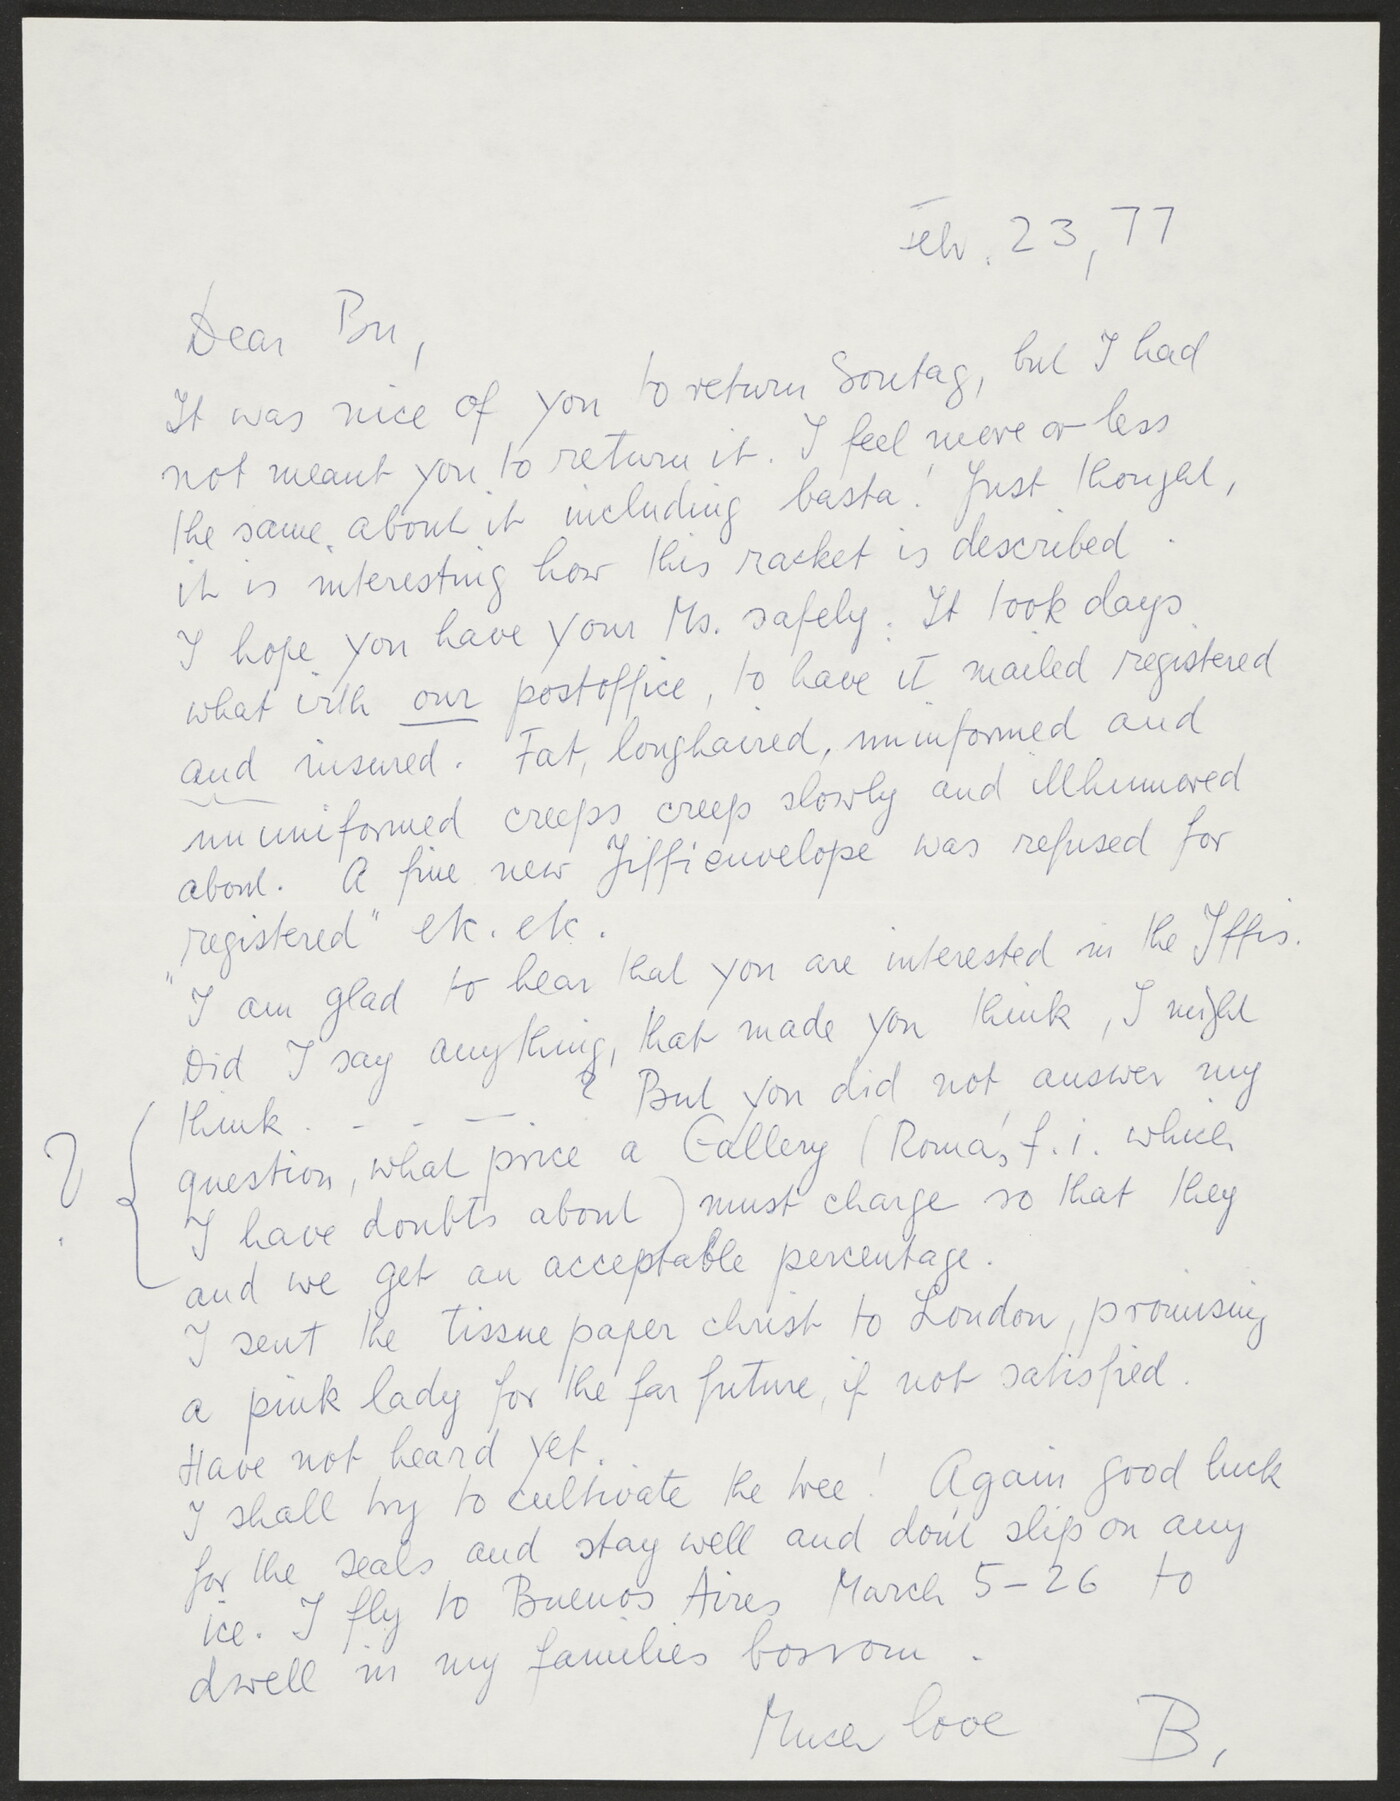 Feb. 23, 77
Dear Bu,
It was nice of you to return Sontag, but I had
not meant you to return it. I feel more or less
the same about it including basta! Just thought,
it is interesting how this racket is described.
I hope you have your Ms. safely. It took days
what with our postoffice, to have it mailed registered
and insured. Fat, longhaired, uninformed and
ununiformed creeps creep slowly and illhumored
about. A fine new Jiffienvelope was refused for
"registered" etc. etc.
I am glad to hear that you are interested in the Iffis.
Did I say anything, that made you think, I might
think . - - - — ? But you did not answer my
question, what price a Gallery (Roma's f.i. which
I have doubts about) must charge so that they
and we get an acceptable percentage.
?
I sent the tissue paper christ to London, promising
a pink lady for the far future, if not satisfied.
Have not heard yet.
I shall try to cultivate the tree! Again good luck
for the seals and stay well and don't slip on any
ice. I fly to Buenos Aires March 5-26 to
dwell in my families bossom.
Much love B,